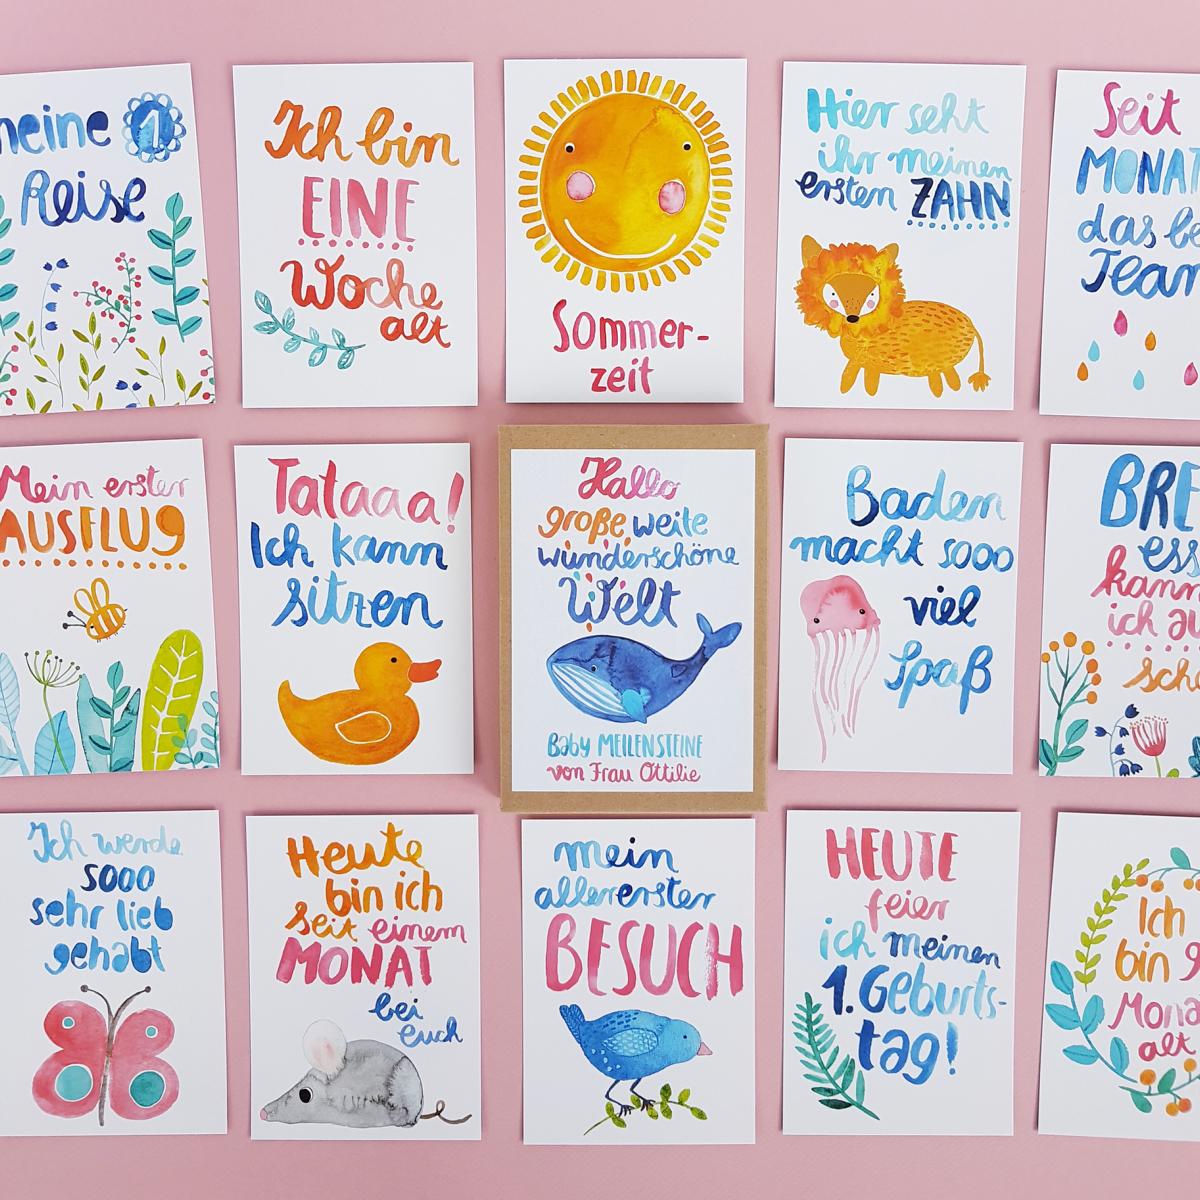 meine 1
Reise
Ich bin
EINE
Woche
alt
Sommer-
zeit
Hier seht
ihr meinen
ersten ZAHN
Seit
MONAT
das be
Team
Mein erster
AUSFLUG
Tataaa!
Ich kann
sitzen
Hallo
große, weite
wunderschöne
Welt
Baby MEILENSTEINE
von Frau Ottilie
Baden
macht sooo
viel
Spaß
BRE
ess
kann
ich au
sch
Ich werde
sooo
sehr lieb
gehabt
Heute
bin ich
seit einem
MONAT
bei
euch
mein
allererster
BESUCH
HEUTE
feier
ich meinen
1. Geburts-
tag!
Ich
bin 9
Mona
alt